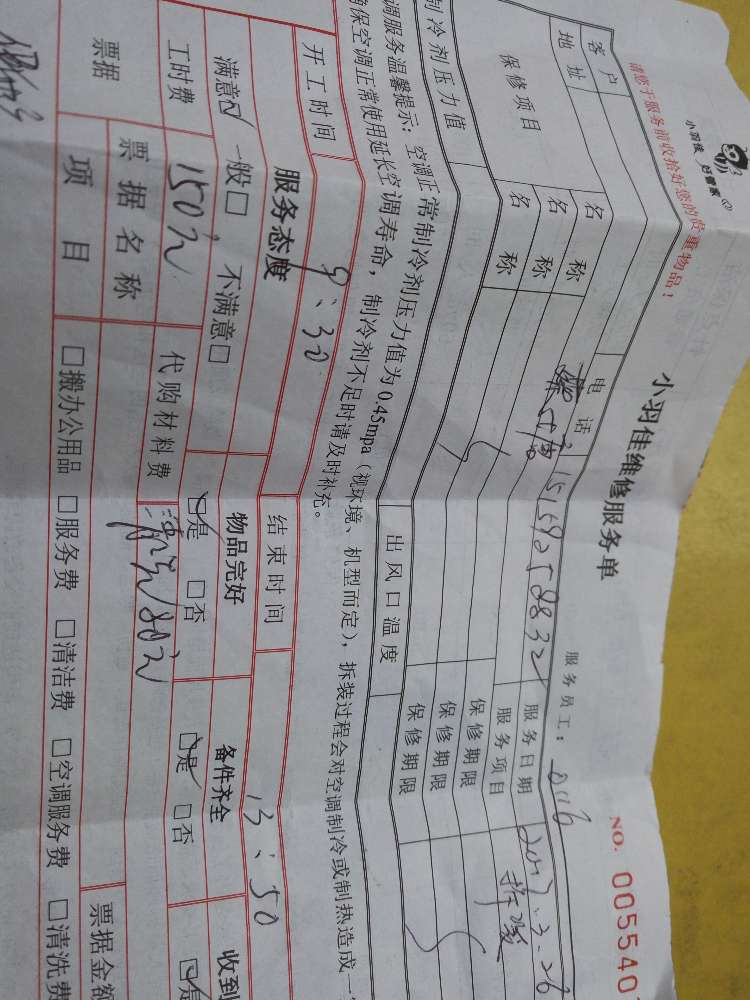 小羽佳 好管家
小羽佳维修服务单
请您于服务前收拾好您的贵重物品!
服务员工: 0116
NO. 005540
客户
电话
服务日期 2017.3.26
地址
服务项目
保修项目
名称
保修期限
名称
保修期限
名称
保修期限
制冷剂压力值
出风口温度
调服务温馨提示:空调正常制冷剂压力值为0.45mpa(视环境、机型而定),拆装过程会对空调制冷或制热造成一
确保空调正常使用延长空调寿命,制冷剂不足时请及时补充。
开工时间 9:30 结束时间 13:50
服务态度 物品完好 备件齐全 收到
满意☑ 一般□ 不满意□ ☑是 □否 ☑是 □否 ☑是
工时费 150元 代购材料费
80元
票据 票据名称 票据金额
项目 □搬办公用品 □服务费 □清洁费 □空调服务费 □清洗费